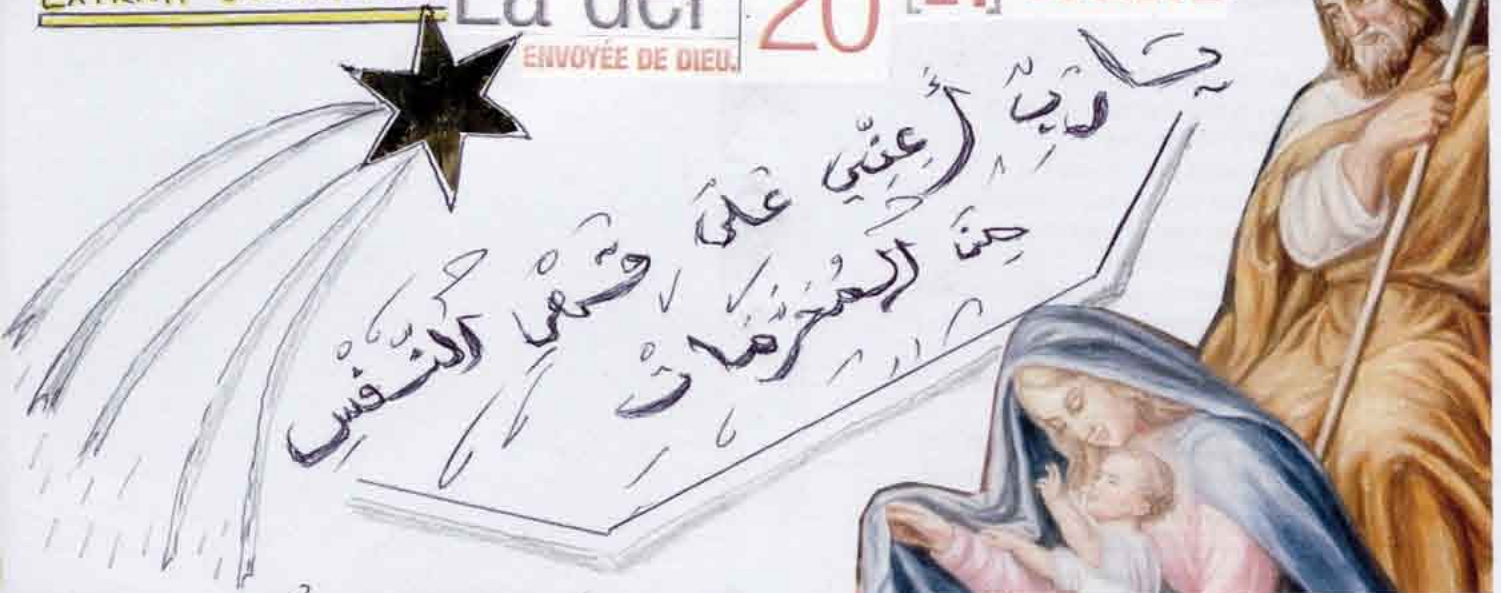 La der
ENVOYÉE DE DIEU.
20
يَا رَبِّ أَعِنِّي عَلَى قَهْرِ النَّفْسِ
مِنَ المُحَرَّمَاتِ